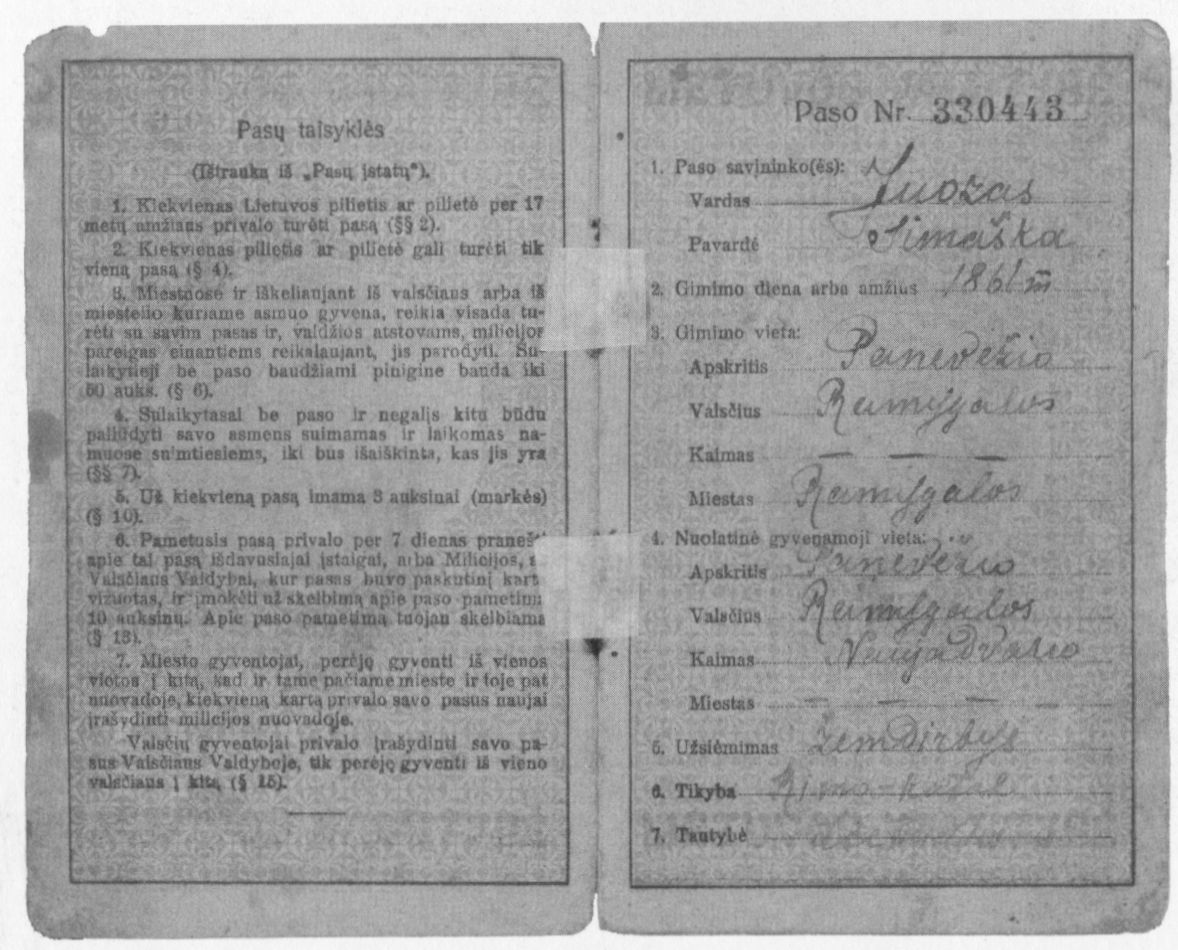 Pasų taisyklės
(Ištrauka iš „Pasų įstatų“).
1. Kiekvienas Lietuvos pilietis ar pilietė per 17
metų amžiaus privalo turėti pasą (§§ 2).
2. Kiekvienas pilietis ar pilietė gali turėti tik
vieną pasą (§ 4).
3. Miestuose ir iškeliaujant iš valsčiaus arba iš
miestelio kuriame asmuo gyvena, reikia visada tu-
rėti su savim pasas ir, valdžios atstovams, milicijos
pareigas einantiems reikalaujant, jis parodyti. Su-
laikytieji be paso baudžiami pinigine bauda iki
50 auks. (§ 6).
4. Sulaikytasai be paso ir negaljs kitu būdu
paliudyti savo asmens suimamas ir laikomas na-
muose su'mtiesiems, iki bus išaiškinta, kas jis yra
(§§ 7).
5. Už kiekvieną pasą imama 3 auksinai (markės)
(§ 10).
6. Pametusis pasą privalo per 7 dienas pranešti
apie tai pasą išdavusiajai įstaigai, arba Milicijos,
Valsčiaus Valdybai, kur pasas buvo paskutinį kart
vizuotas, ir įmokėti už skelbimą apie paso pametimą
10 auksinų. Apie paso pametimą tuojau skelbiama
(§ 13).
7. Miesto gyventojai, perėję gyventi iš vienos
vietos į kitą, kad ir tame pačiame mieste ir toje pat
nuovadoje, kiekvieną kartą privalo savo pasus naujai
įrašydinti milicijos nuovadoje.
Valsčių gyventojai privalo įrašydinti savo pa-
sus Valsčiaus Valdyboje, tik perėję gyventi iš vieno
valsčiaus į kitą (§ 15).
Paso Nr. 330443
1. Paso savininko(ės):
Vardas Juozas
Pavardė Simaška
2. Gimimo diena arba amžius 1861 m
3. Gimimo vieta:
Apskritis Panevėžio
Valsčius Ramygalos
Kaimas — — —
Miestas Ramygalos
4. Nuolatinė gyvenamoji vieta:
Apskritis Panevėžio
Valsčius Ramygalos
Kaimas Naujadvario
Miestas — — — —
5. Užsiėmimas žemdirbys
6. Tikyba Rymo-katal
7. Tautybė